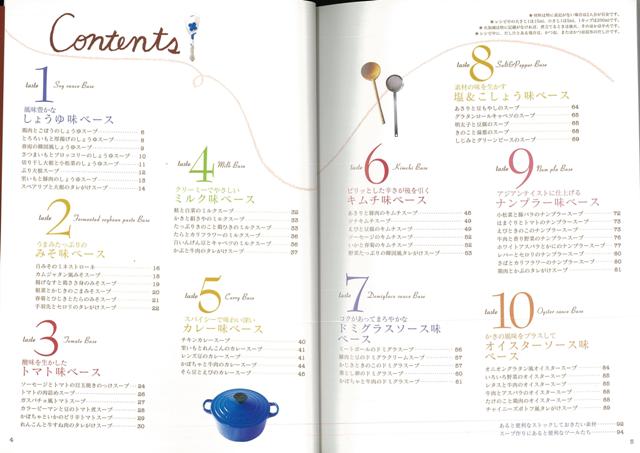 Contents
taste 1 Soy sauce Base
風味豊かな
しょうゆ味ベース
鶏肉とごぼうのしょうゆスープ 6
とろろいもと厚揚げのしょうゆスープ 8
春雨の韓国風しょうゆスープ 9
さつまいもとブロッコリーのしょうゆスープ 10
切り干し大根と小松菜のしょうゆスープ 11
ぶり大根スープ 12
里いもと豚肉のしょうゆスープ 13
スペアリブと大根のタレがけスープ 14
taste 2 Fermented soybean paste Base
うまみたっぷりの
みそ味ベース
白みそのミネストローネ 16
カムジャタン風みそスープ 18
揚げなすと鶏ささ身のみそスープ 19
根菜とかじきのごまみそスープ 20
春菊とひき肉とたらのみそスープ 21
手羽先とセロリのタレがけスープ 22
taste 3 Tomato Base
酸味を生かした
トマト味ベース
ソーセージとトマトの目玉焼きのっけスープ 24
トマトの肉詰めスープ 26
ガスパチョ風トマトスープ 27
カラーピーマンと豆のトマト煮スープ 28
かぼちゃといかのピリ辛トマトスープ 29
れんこんと牛すね肉のタレがけスープ 30
taste 4 Milk Base
クリーミーでやさしい
ミルク味ベース
鮭と白菜のミルクスープ 32
かきと麩ききやのミルクスープ 33
たっぷりきのこと鶏ひきのミルクスープ 34
たらとカリフラワーのミルクスープ 36
白いんげん豆とキャベツのミルクスープ 36
かぶと牛肉のタレがけスープ 37
taste 5 Curry Base
スパイシーで味わい深い
カレー味ベース
チキンカレースープ 40
里いもとれんこんのカレースープ 41
レンズ豆のカレースープ 41
かぼちゃと牛肉のカレースープ 44
そら豆とえびのカレースープ 45
taste 6 Kimchi Base
ピリッとした辛さが後を引く
キムチ味ベース
あさりと豚肉のキムチスープ 48
ツナキムチスープ 49
えびと豆腐のキムチスープ 50
ソーセージのキムチスープ 52
いかと春菊のキムチスープ 52
野菜たっぷりの韓国風がけスープ 53
taste 7 Demiglace sauce Base
コクがあってまろやかな
ドミグラスソース味
ベース
ミートボールのドミグラスープ 56
taste 8 Salt&Pepper Base
素材の味を生かす
塩&こしょう味ベース
あさりと豆もやしのスープ 64
グラタンロールキャベツのスープ 65
明太子と豆腐のスープ 66
きのこと湯葉のスープ 68
しじみとグリーンピースのスープ 69
taste 9 Nam pla Base
アジアンテイストに仕上げる
ナンプラー味ベース
小松菜と豚バラのナンプラースープ 72
はまぐりとトマトのナンプラースープ 73
えびときのこのナンプラースープ 74
牛肉と香り野菜のナンプラースープ 76
ホワイトアスパラとかにのナンプラースープ 77
レバーとセロリのナンプラースープ 80
さばとカリフラワーのナンプラースープ 80
鶏肉とかぶのタレがけスープ 81
taste 10 Oyster sauce Base
かきの風味をプラスして
オイスターソース味
ベース
オニオングラタン風オイスタースープ 84
いろいろ野菜のオイスタースープ 85
レタスと牛肉のオイスタースープ 86
牛肉とアスパラのオイスタースープ 88
たけのこと鶏肉のオイスタースープ 88
チャイニーズポトフ風タレがけスープ 89
あると便利なストックしておきたい素材 92
スープ作りにあると便利なツールたち 94
4
5